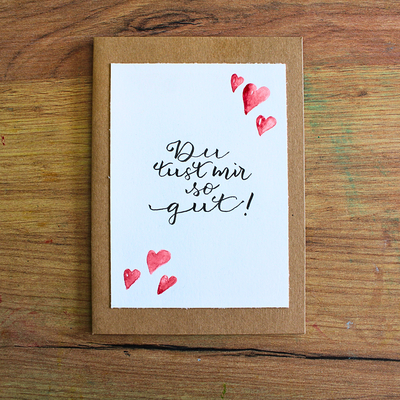 Du
tust mir
so
gut!